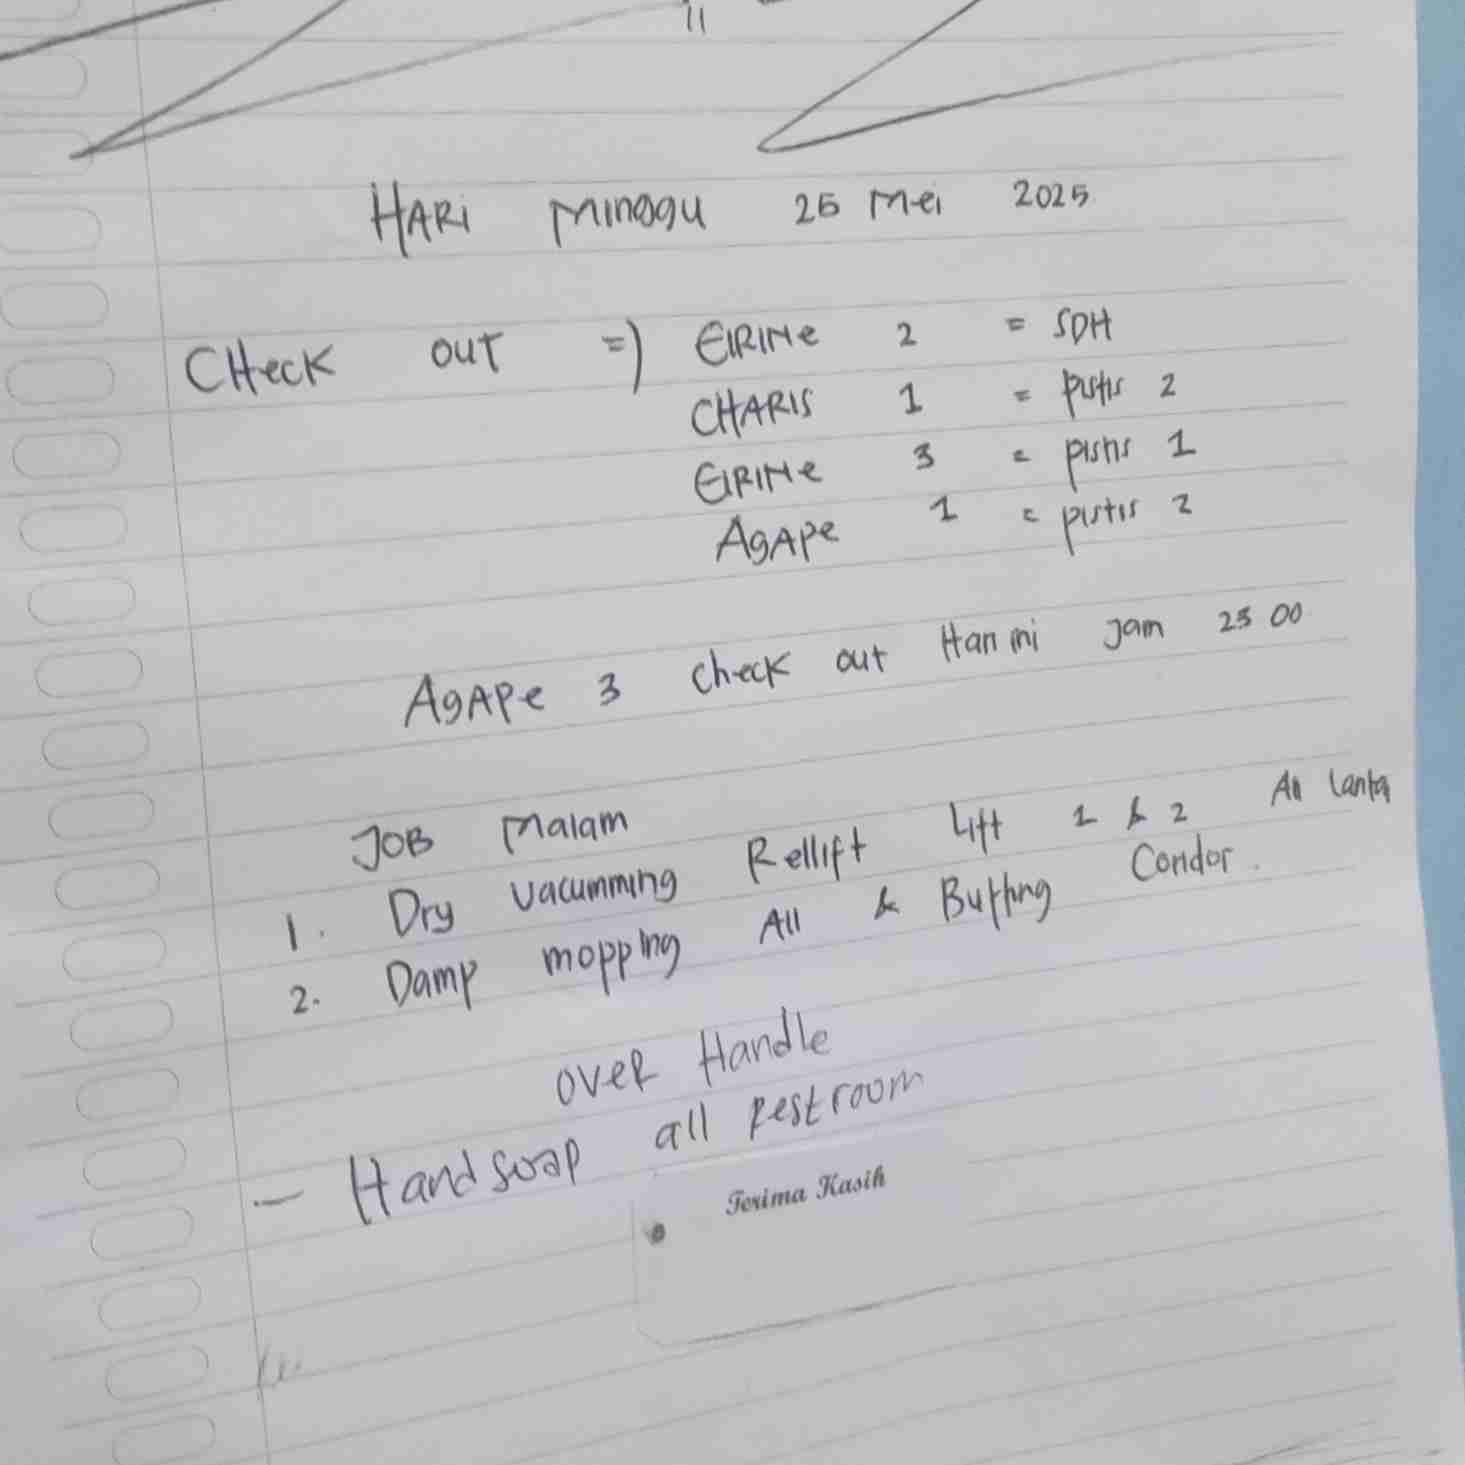 HARI Minggu 25 Mei 2025
CHecK OUT =) EIRINe 2 = SDH
CHARIS 1 = pistis 2
EIRINe 3 = pistis 1
AgAPe 1 = pistis 2
AgAPe 3 check out Hari ini Jam 23 00
JOB Malam
1. Dry vacumming Rellift Lift 1 & 2 All lantai
2. Damp mopping All & Buffing Coridor.
over Handle
- Handsoap all Restroom
Terima Kasih